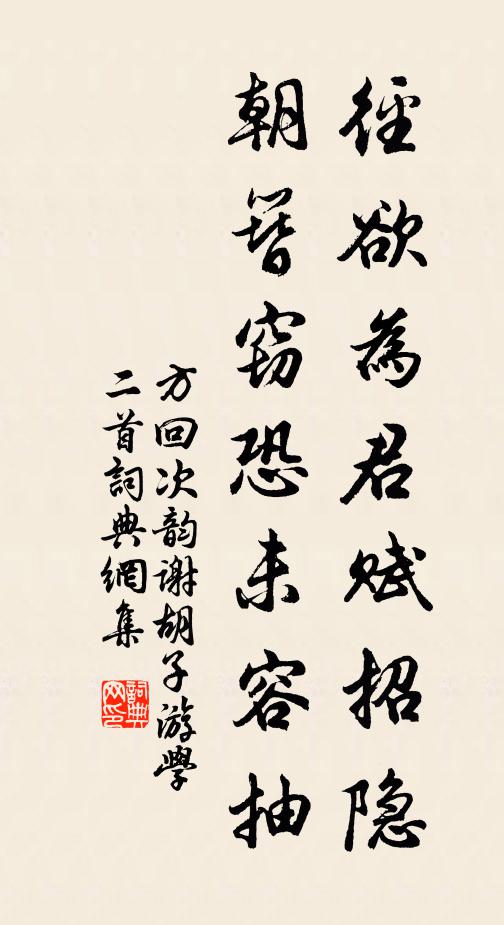 徑欲為君賦招隐
朝簪竊恐未容抽
方回次韵谢胡子游學
二首詞典網集
詞典
网印